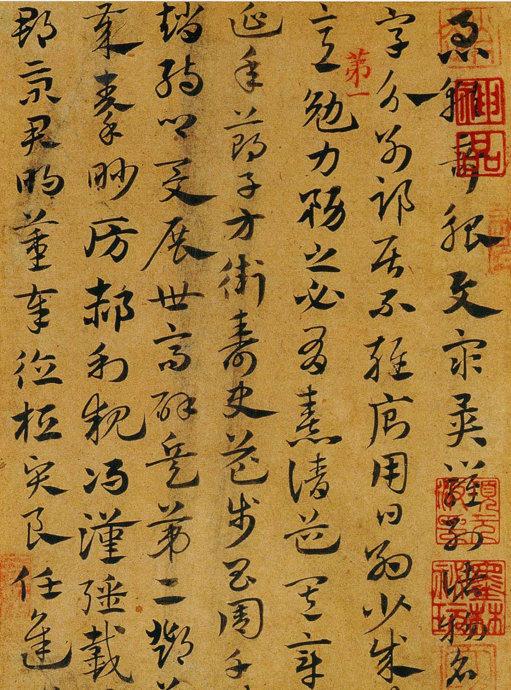 急就奇觚與衆異羅列諸物名
字分別部居不雜廁用日約少誠
第一
意勉力務之必有憙請道其章
延年鄭子方衛壽史步昌周千
趙孺卿爰展世高辟兵第二鄧
秦眇房郝利親馮漢彊戴
郡景君明董奉德桓賢良任逢